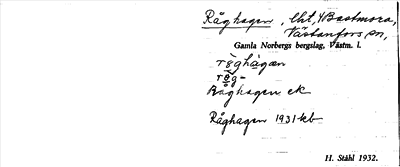 Råghagen, lht, Bastmora,
Västanfors sn,
Gamla Norbergs bergslag, Västm. l.
röghàgan
rög-
Råghagen ek
Råghagen 1931 kb
H. Ståhl 1932.